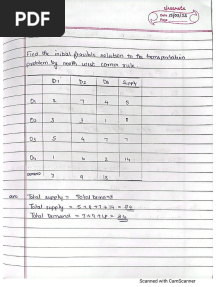 PDF
classmate
Date
Page
Find the initial feasible solution to the transportation
problem by north west corner rule
D1 D2 D3 Supply
2 7 4 5
3 3 1 8
5 4 7 7
1 6 2 14
Demand 7 9 18
ans: Total supply = Total demand
Total supply = 5+8+7+14 = 34
Total demand = 7+9+18 = 34
Scanned with CamScanner